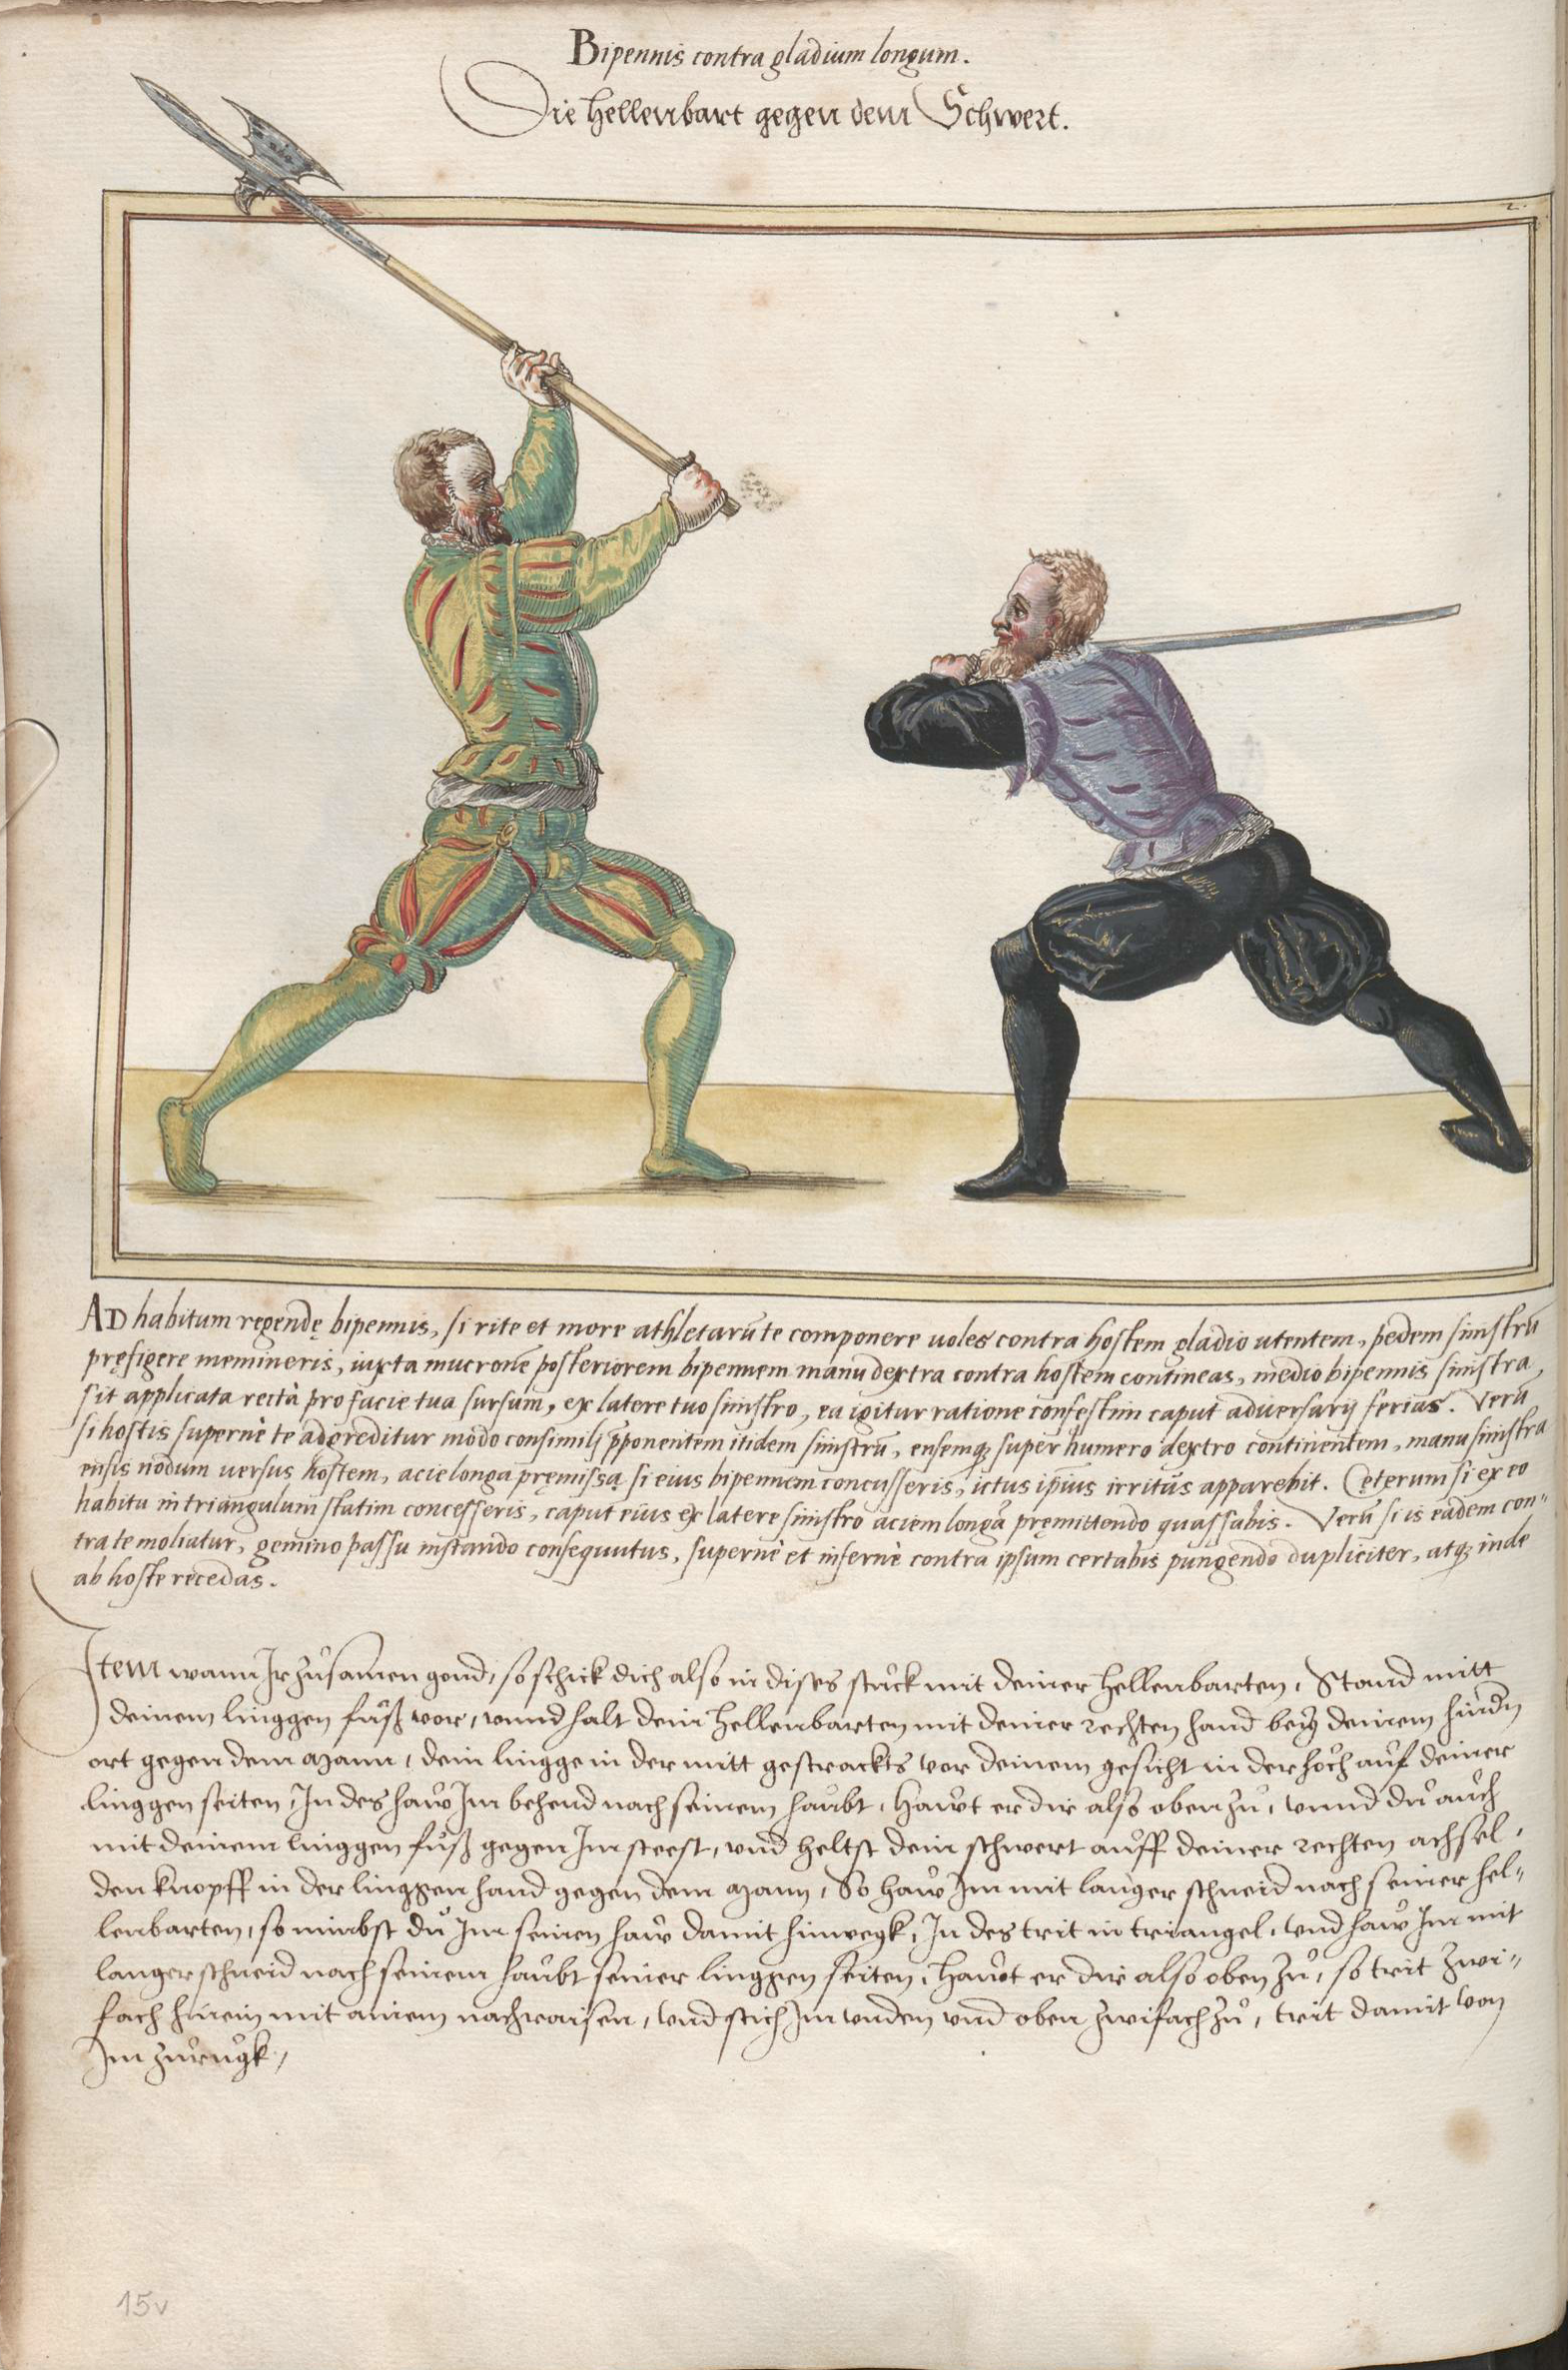 Bipennis contra gladium longum.
Die Hellenbart gegen dem Schwert.
2.
AD habitum regendę bipennis, si rite et more athletarū te componere uoles contra hostem gladio utentem, pedem sinistrū
pręfigere memineris, iuxta mucronē posteriorem bipennem manu dextra contra hostem contineas, medio bipennis sinistra
sit applicata rectà pro facie tua sursum, ex latere tuo sinistro, ea igitur ratione confestim caput aduersarij ferias. Verū
si hostis supernè te adgreditur modo consimilj p̄ponentem itidem sinistrū, ensemq; super humero dextro continentem, manu sinistra
ensis nodum uersus hostem, acie longa pręmissa si eius bipennem concusseris, ictus ip̄ius irritus apparebit. Cęterum si ex eo
habitu in triangulum statim concesseris, caput eius ex latere sinistro aciem longā pręmittendo quassabis. Verū si is eadem con-
tra te moliatur, gemino passu instando consequutus, supernè et infernè contra ipsum certabis pungendo dupliciter, atq; inde
ab hoste recedas.
Item wann Ir zůsamen gond, so schick dich also in dises stuck mit deiner Hellenbarten, Stand mitt
deinem linggen fůß vor, vnnd halt dein Hellenbarten mit deiner rechten hand bey deinem hindn
ort gegen dem Mann, dein lingge in der mitt gestrackts vor deinem gesicht in der höch auf deiner
linggen seiten, In des haw Im behend nach seinem haubt, Hawt er dir also oben zů, vnnd du auch
mit deinem linggen fůß gegen Im steest, vnd heltst dein schwert auff deiner rechten achsel,
den knopff in der linggen hand gegen dem Mann, So haw Im mit langer schneid nach seiner Hel-
lenbarten, so nimbst du Im seinen haw damit hinwegk, In des trit in triangel, vnd haw Im mit
langer schneid nach seinem haubt seiner linggen seiten, Hawt er dir also oben zů, so trit zwi-
fach hinein mit ainem nachraisen, vnd stich Im vnden vnd oben zwifach zů, trit damit von
Im zůrugk,
15v